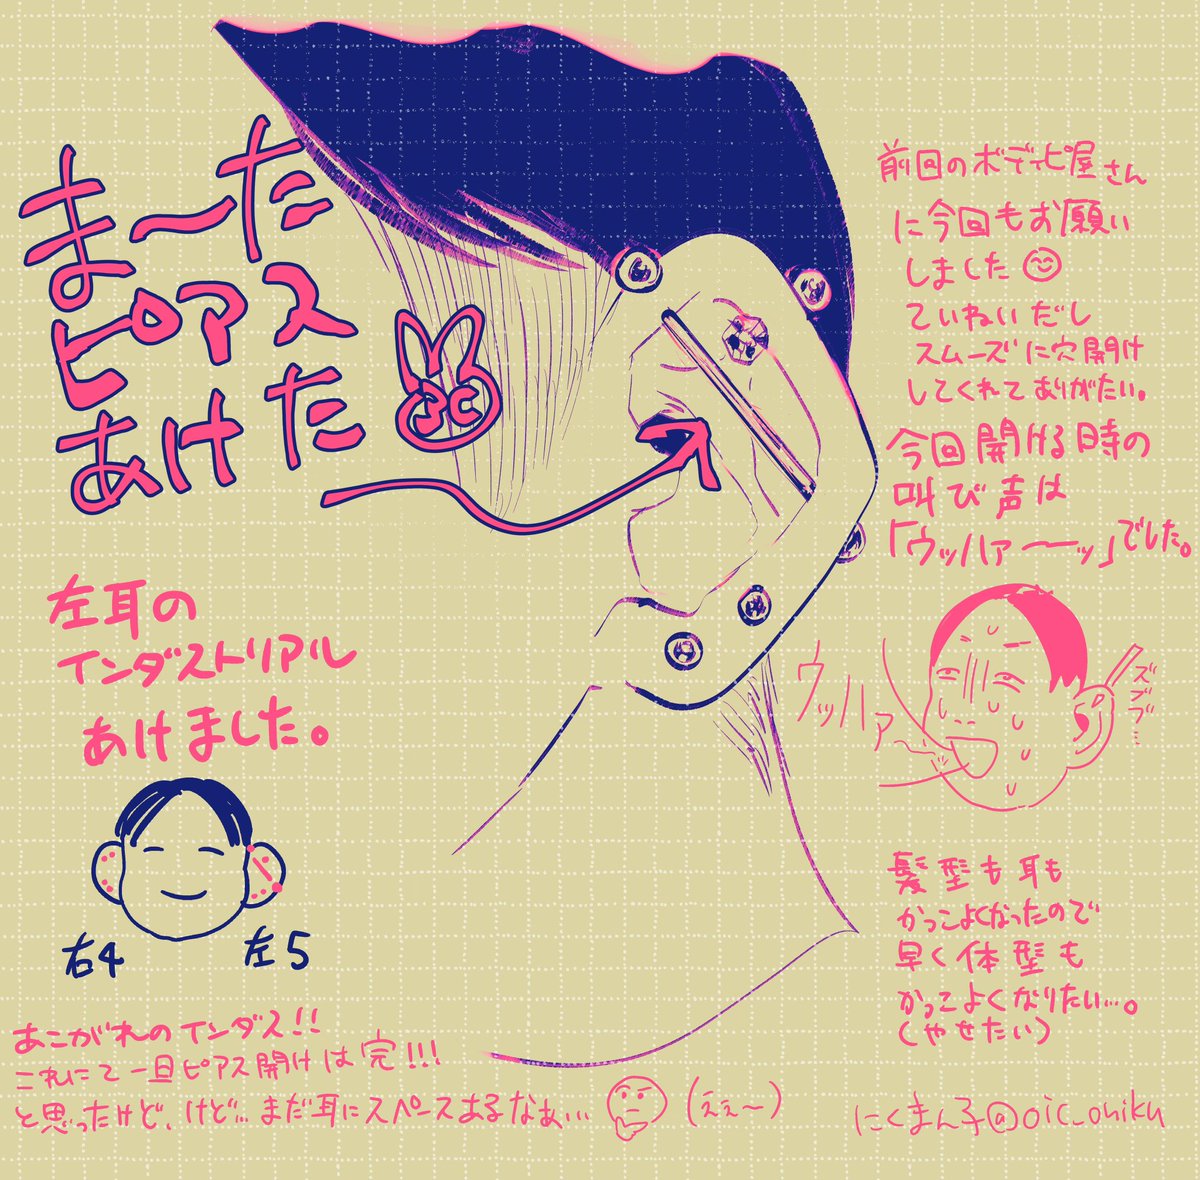 まーた
ピアス
あけた
左耳の
インダストリアル
あけました。
右4
左5
前回のボディピ屋さん
に今回もお願い
しました
ていねいだし
スムーズに穴開け
してくれてありがたい。
今回開ける時の
叫び声は
「ウッハァーーッ」でした。
ウッハァ
ズブブ…
髪型も耳も
かっこよくなったので
早く体型も
かっこよくなりたい…。
(やせたい)
あこがれのインダス!!
これにて一旦ピアス開けは完!!!
と思ったけど、けど…まだ耳にスペースあるなぁ…
(えぇ〜)
にくまん子@oic_oniku